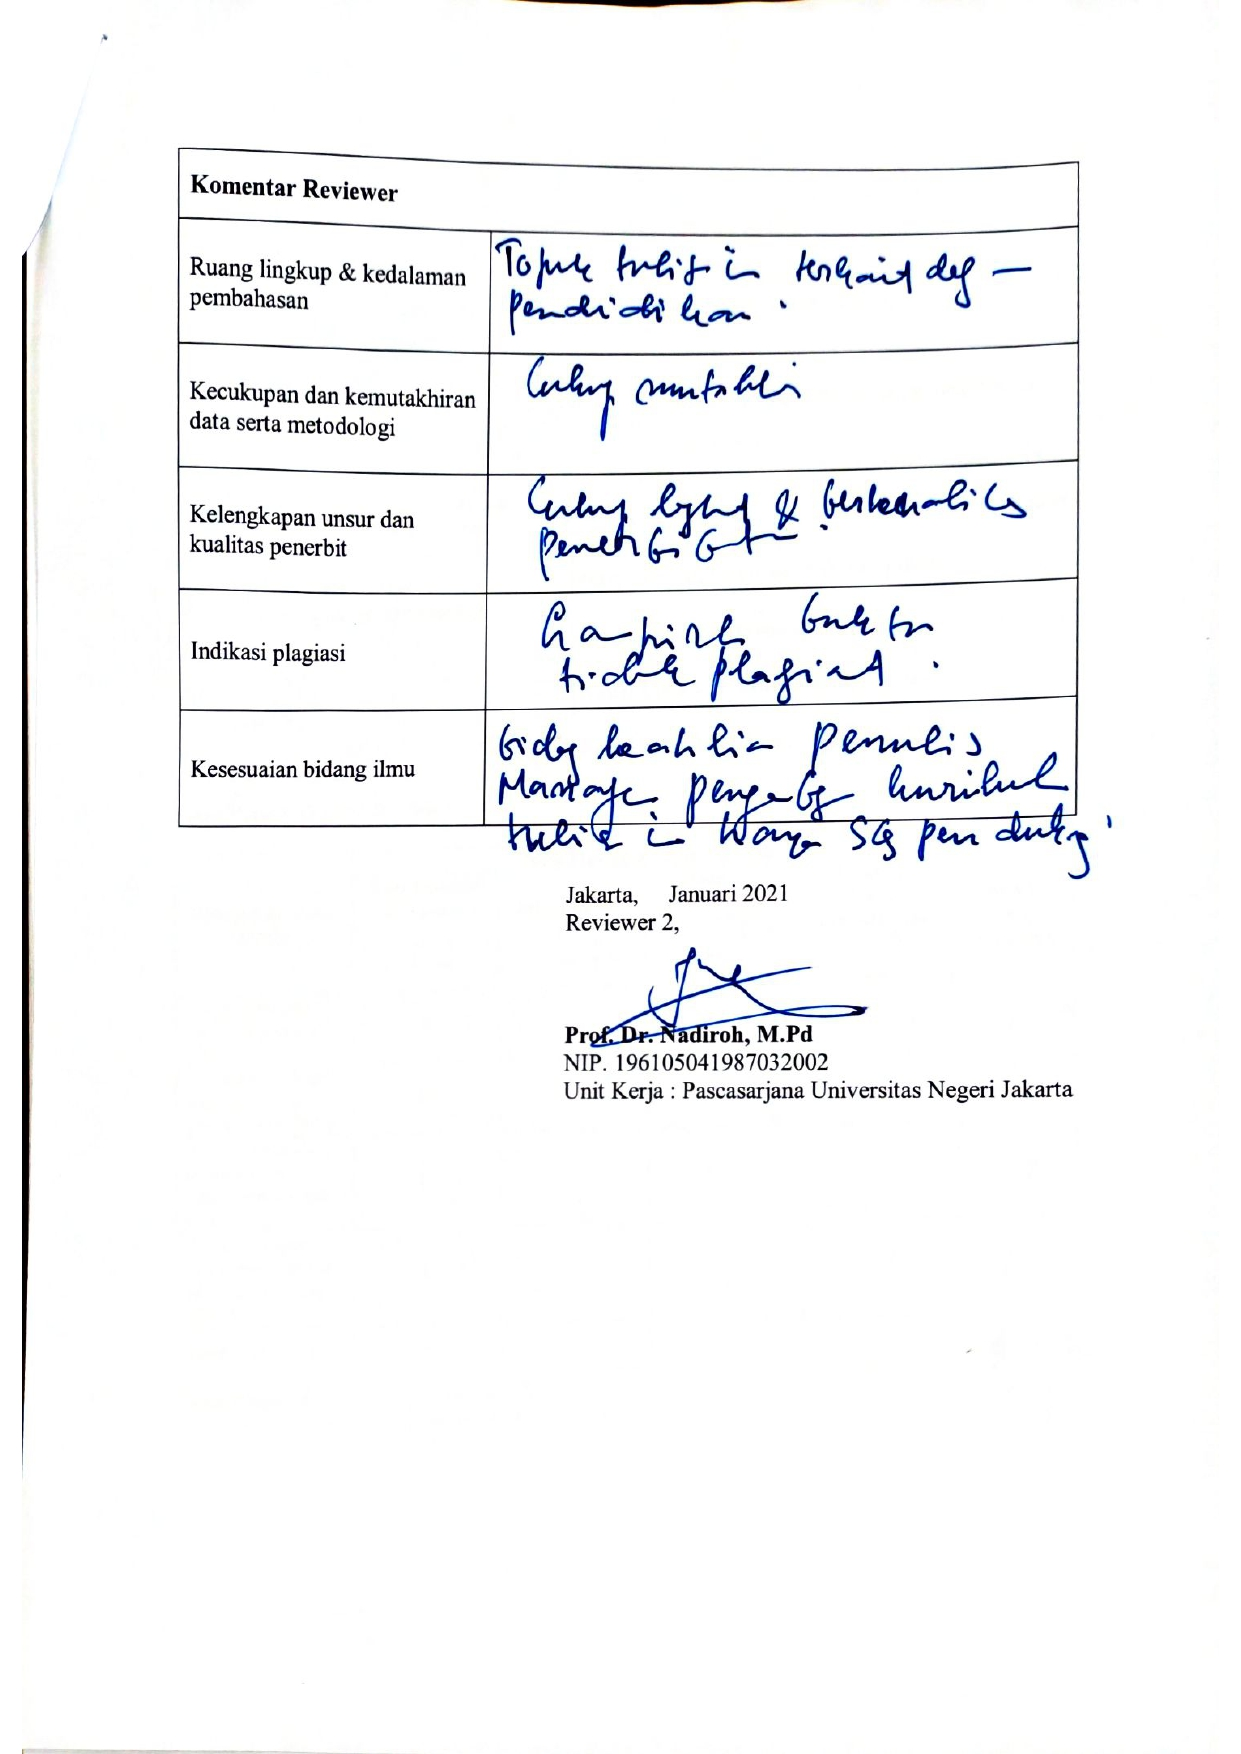 Komentar Reviewer
Ruang lingkup & kedalaman
pembahasan
Topik tulis in terkait dg
pendidikan.
Kecukupan dan kemutakhiran
data serta metodologi
Cukup mutakhir
Kelengkapan unsur dan
kualitas penerbit
Cukup & berkualitas
Indikasi plagiasi
bukti
tidak plagiat.
Kesesuaian bidang ilmu
bidg keahlia penulis
hanya sbg pendukg
Jakarta, Januari 2021
Reviewer 2,
Prof. Dr. Nadiroh, M.Pd
NIP. 196105041987032002
Unit Kerja : Pascasarjana Universitas Negeri Jakarta